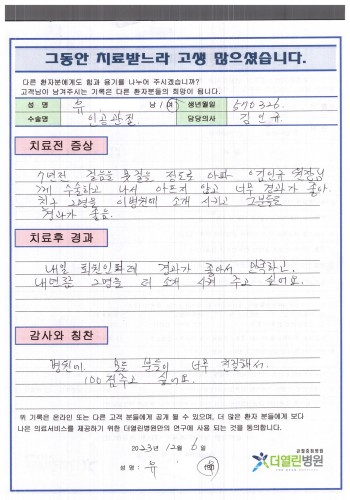 그동안 치료받느라 고생 많으셨습니다.
다른 환자분에게도 힘과 용기를 나누어 주시겠습니까?
고객님이 남겨주시는 기록은 다른 환자분들의 희망이 됩니다.
성 명 유 남 / 여 생년월일 570326.
수술명 인공관절 담당의사 김인규
치료전 증상
7년전 걸음을 못걸을 정도로 아파 김인규 원장님
께 수술하고 나서 아프지 않고 너무 경과가 좋아
친구 2명을 이병원에 소개 시키고 그분들도
경과가 좋음.
치료후 경과
내일 퇴원인데 경과가 좋아서 만족하고.
2명을 더 소개 시켜 주고 싶어요.
감사와 칭찬
병원에 모든 분들이 너무 친절해서.
100점주고 싶어요.
위 기록은 온라인 또는 다른 고객 분들에게 공개 될 수 있으며, 더 많은 환자 분들에게 보다
나은 의료서비스를 제공하기 위한 더열린병원만의 연구에 사용 되는 것을 동의합니다.
2023년 12월 6일
성 명 : 유 (인)
관절중점병원
더열린병원